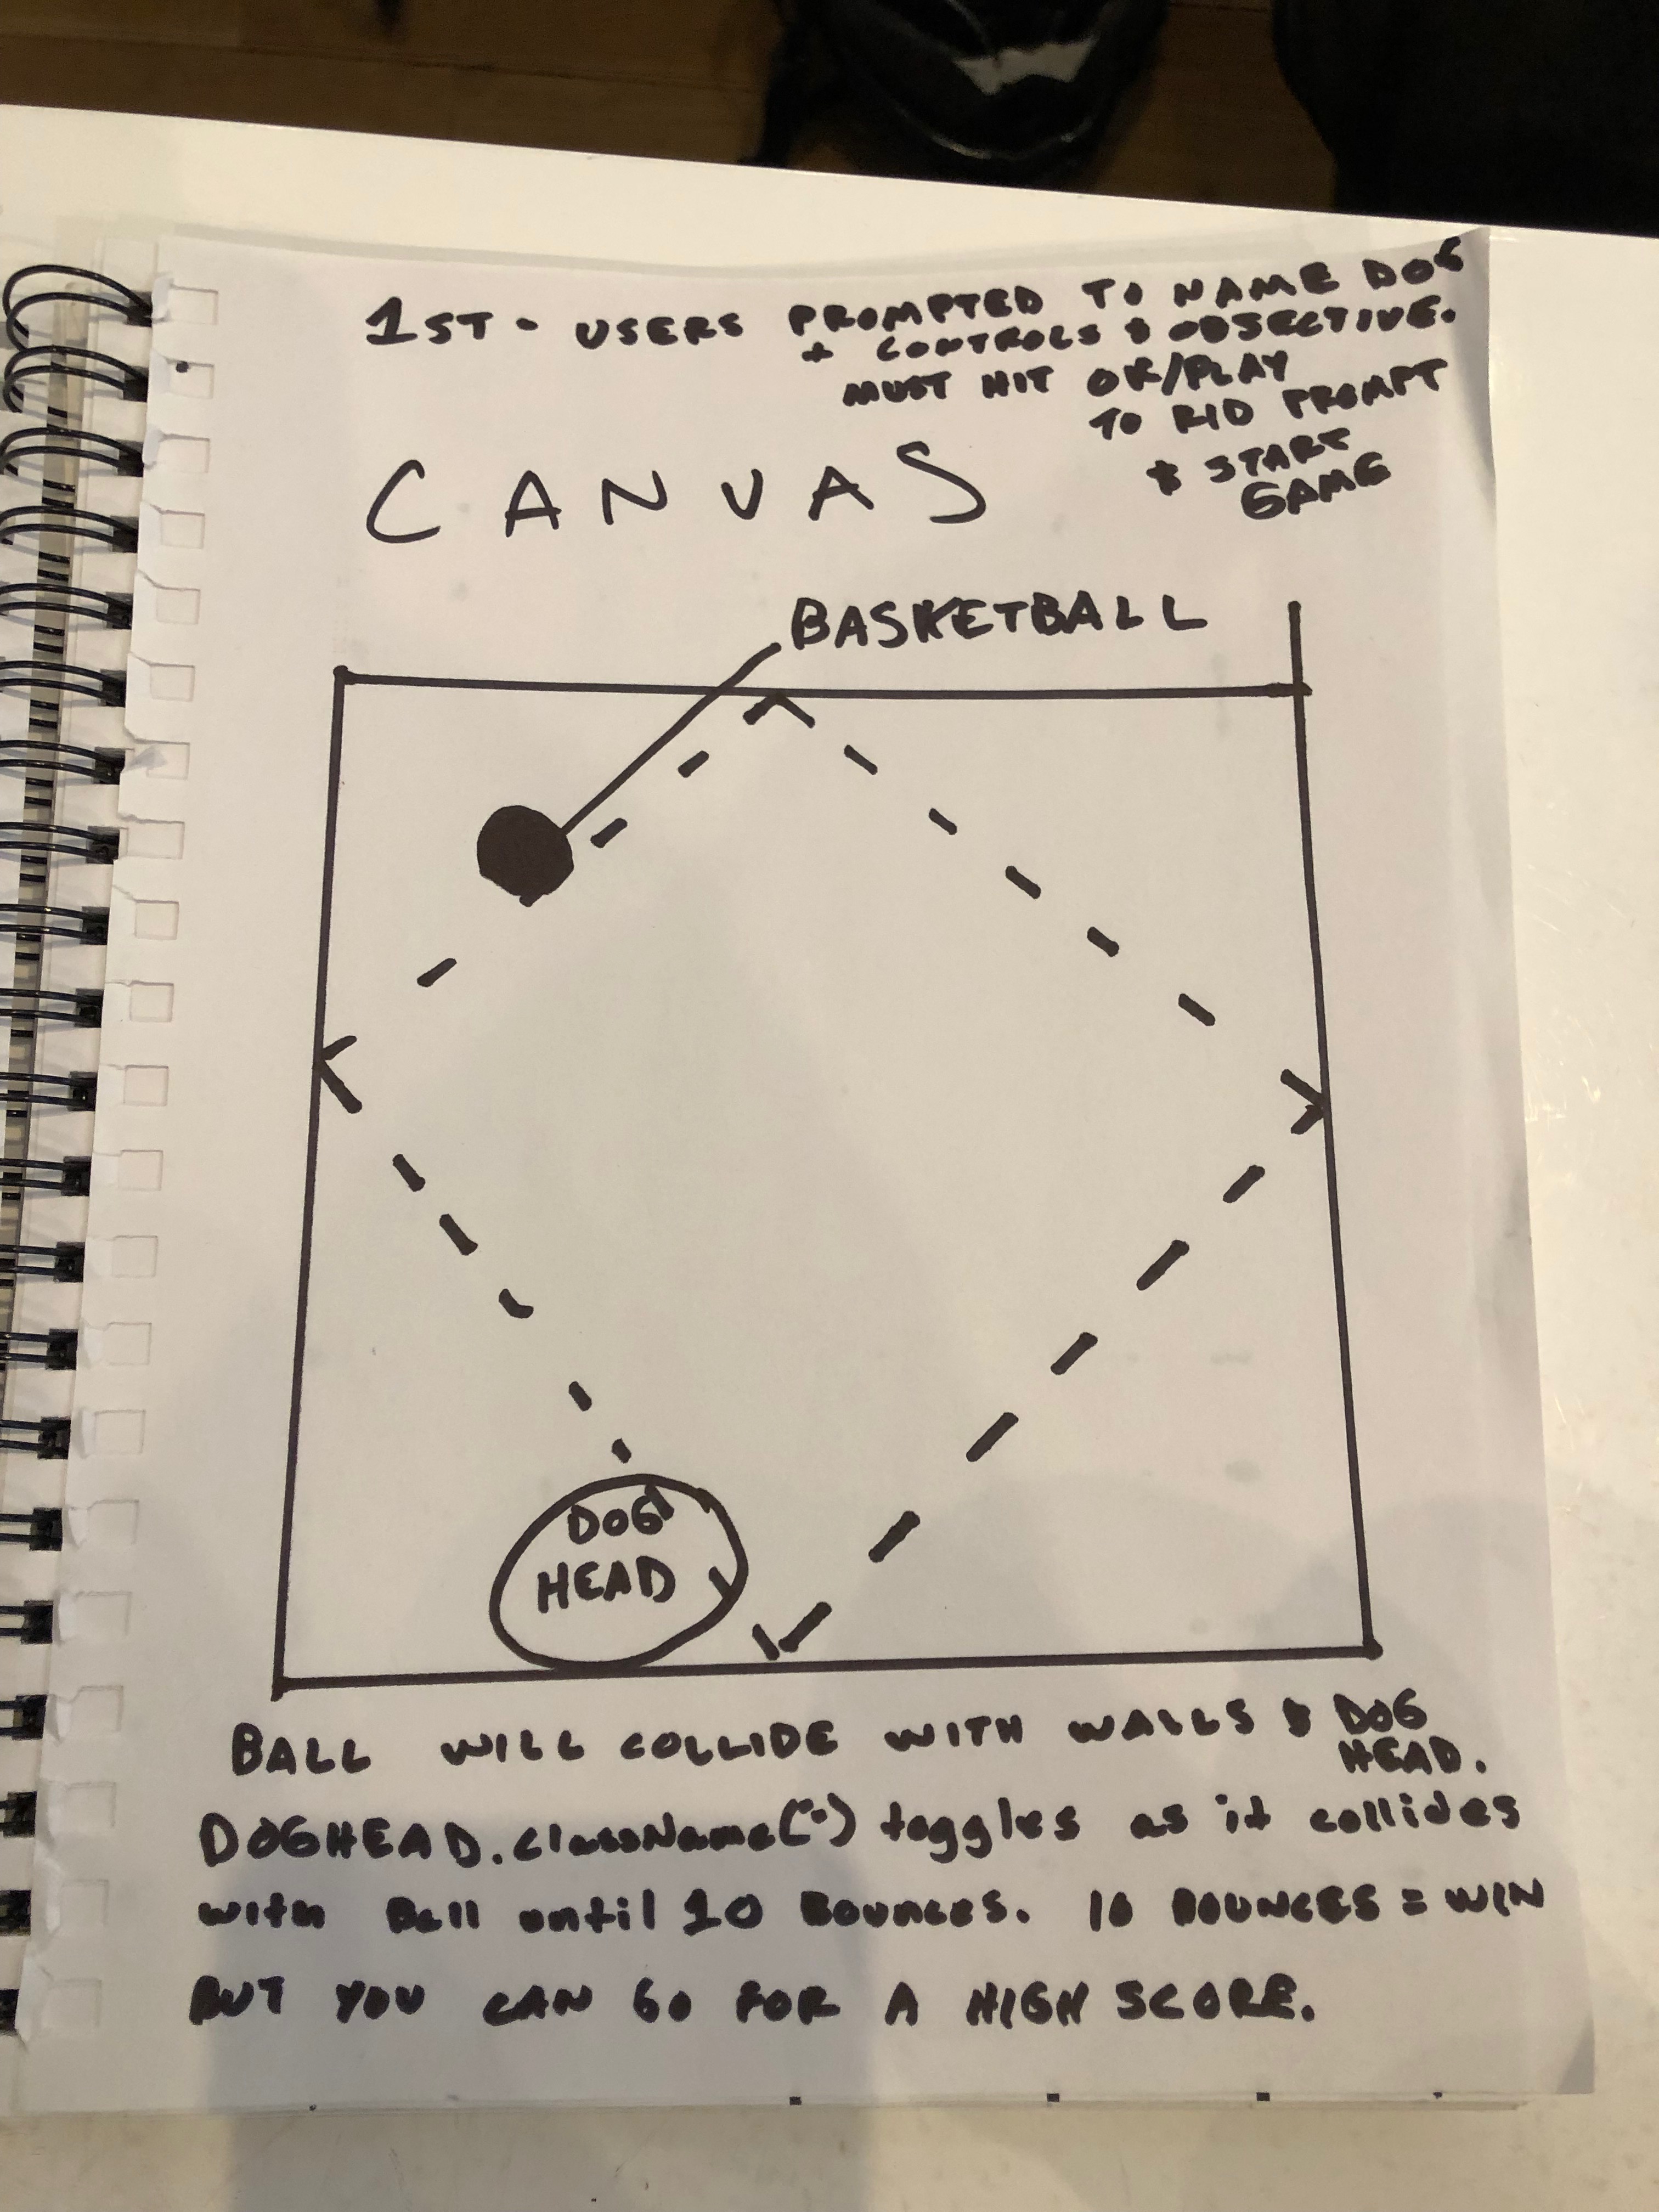 1ST - USERS PROMPTED TO NAME DOG
+ CONTROLS & OBJECTIVE.
MUST HIT OK/PLAY
TO RID PROMPT
& START
GAME
CANVAS
BASKETBALL
DOG
HEAD
BALL WILL COLLIDE WITH WALLS & DOG
HEAD.
DOGHEAD.className(") toggles as it collides
with Ball until 10 Bounces. 10 BOUNCES = WIN
BUT YOU CAN GO FOR A HIGH SCORE.